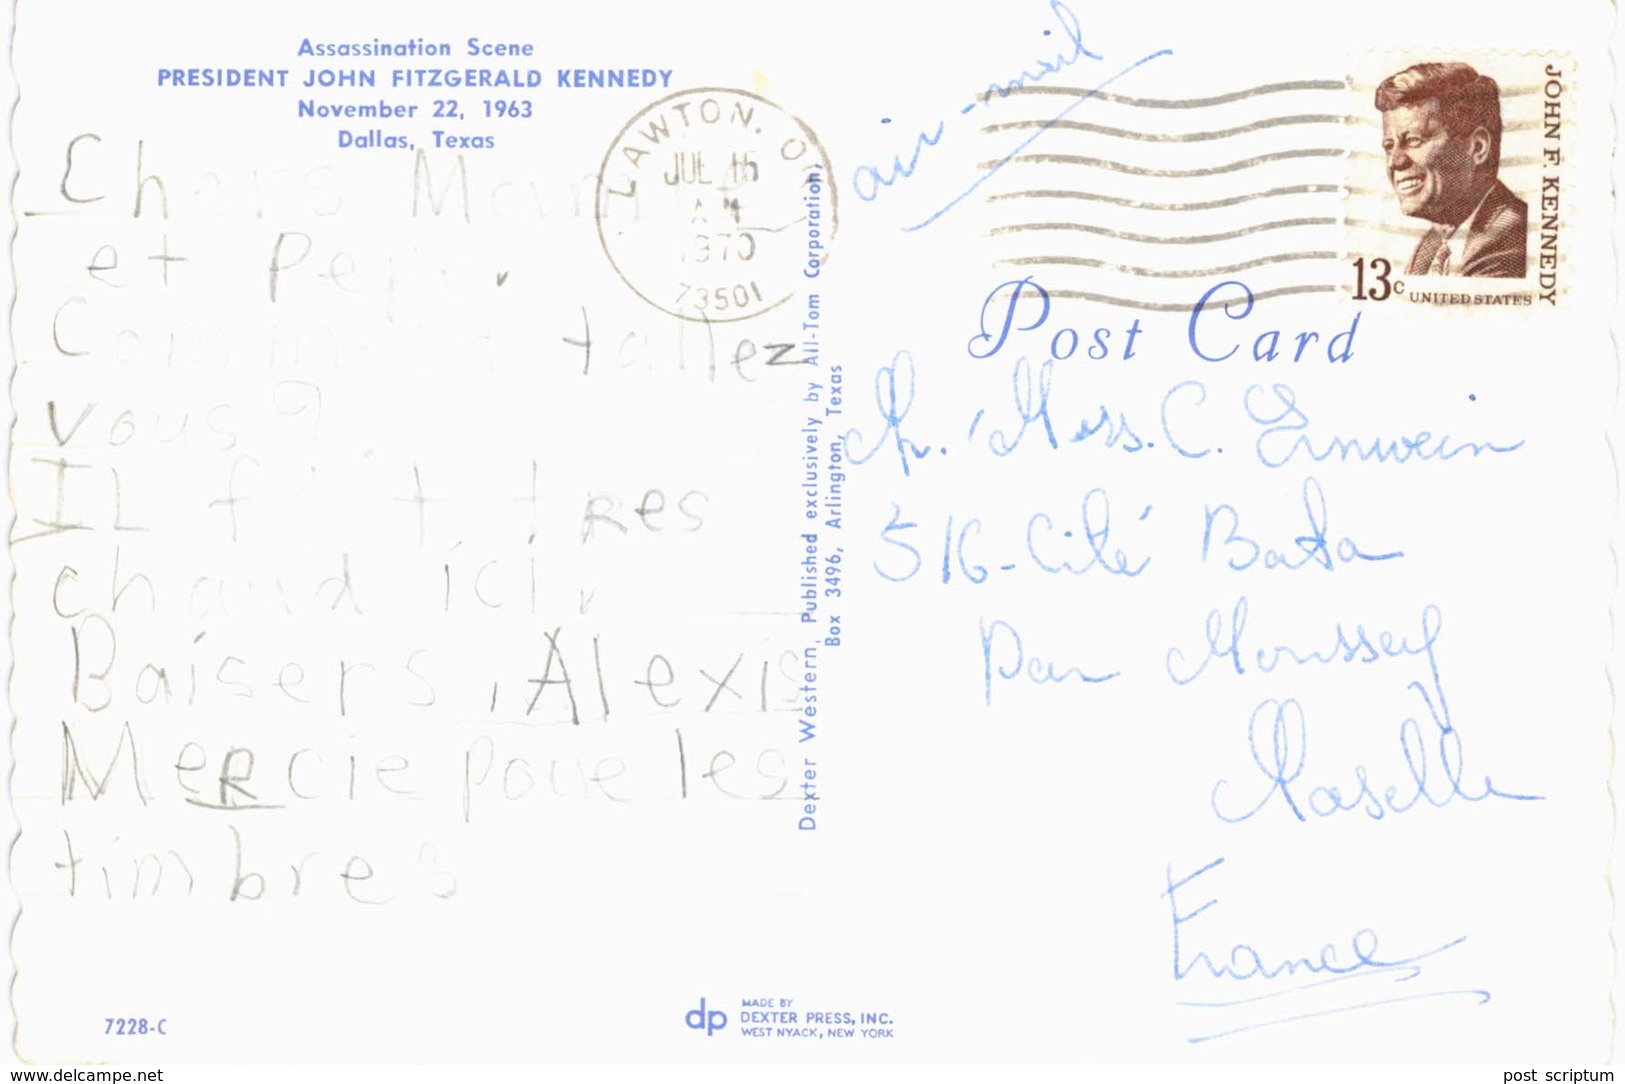 Assassination Scene
PRESIDENT JOHN FITZGERALD KENNEDY
November 22, 1963
Dallas, Texas
Chers Mam
et Pepe.
Comm tallez
vous?
IL fait tres
chaud ici.
Baisers, Alexis
Mercie poue les
timbres
7228-C
Dexter Western, Published exclusively by All-Tom Corporation,
Box 3496, Arlington, Texas
dp
MADE BY
DEXTER PRESS, INC.
WEST NYACK, NEW YORK
LAWTON, O
JUL 15
AM
1970
73501
air-mail
JOHN F. KENNEDY
13c UNITED STATES
Post Card
C. Ernwein
516-Cité Bata
Par Moussey
Moselle
France
www.delcampe.net
post scriptum